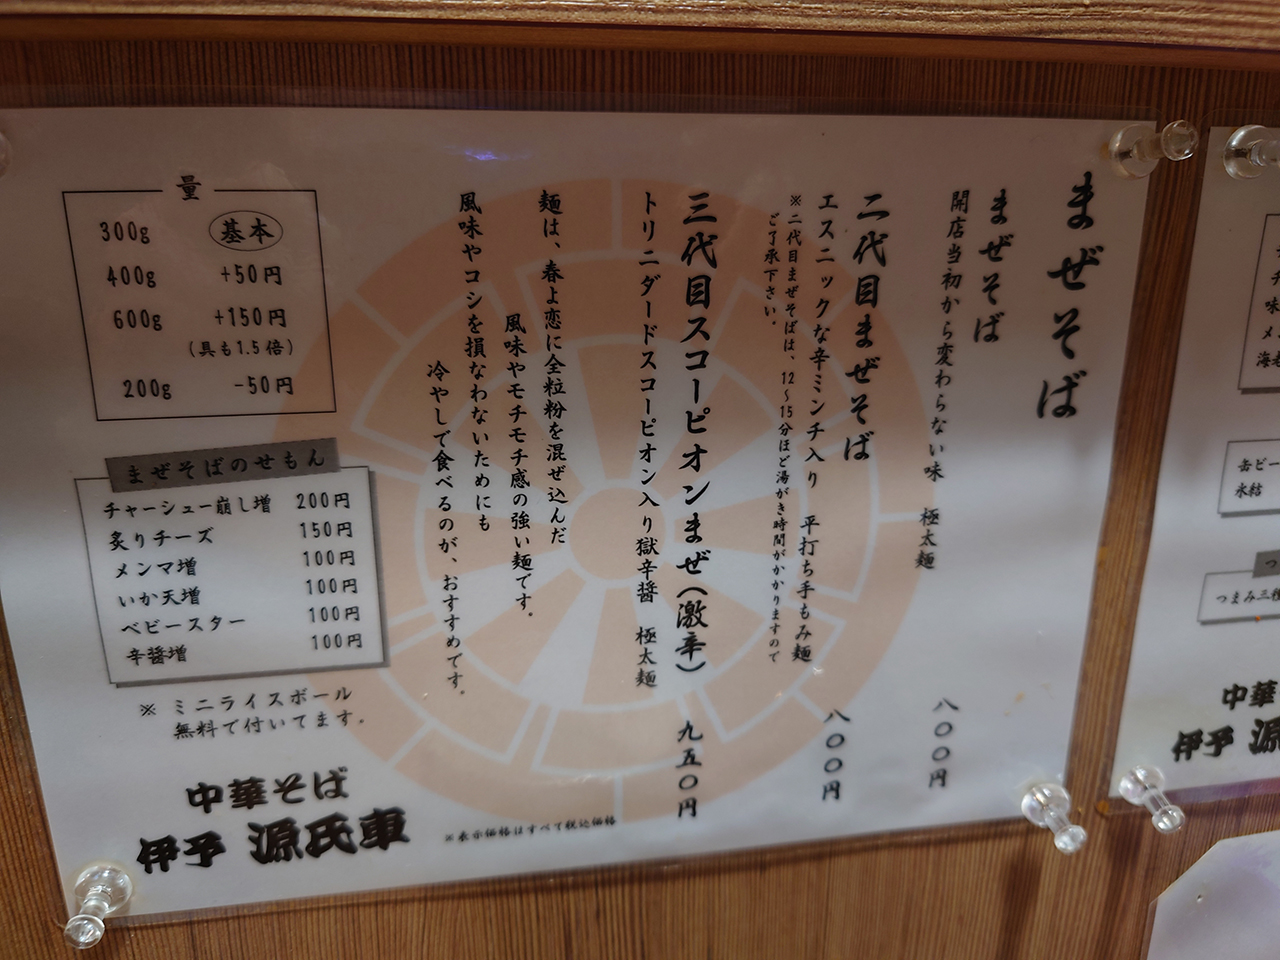 まぜそば
まぜそば
開店当初から変わらない味 極太麺
八〇〇円
二代目まぜそば
エスニックな辛ミンチ入り 平打ち手もみ麺
八〇〇円
※二代目まぜそばは、12～15分ほど湯がき時間がかかりますので
ご了承下さい。
三代目スコーピオンまぜ(激辛)
九五〇円
トリニダードスコーピオン入り獄辛醤 極太麺
麺は、春よ恋に全粒粉を混ぜ込んだ
風味やモチモチ感の強い麺です。
風味やコシを損なわないためにも
冷やしで食べるのが、おすすめです。
量
300g 基本
400g +50円
600g +150円
(具も1.5倍)
200g -50円
まぜそばのせもん
チャーシュー崩し増 200円
炙りチーズ 150円
メンマ増 100円
いか天増 100円
ベビースター 100円
辛醤増 100円
※ ミニライスボール
無料で付いてます。
中華そば
伊予 源氏車
※表示価格はすべて税込価格
味
メン
海老
缶ビー
氷結
つ
つまみ三種
中華
伊予 源